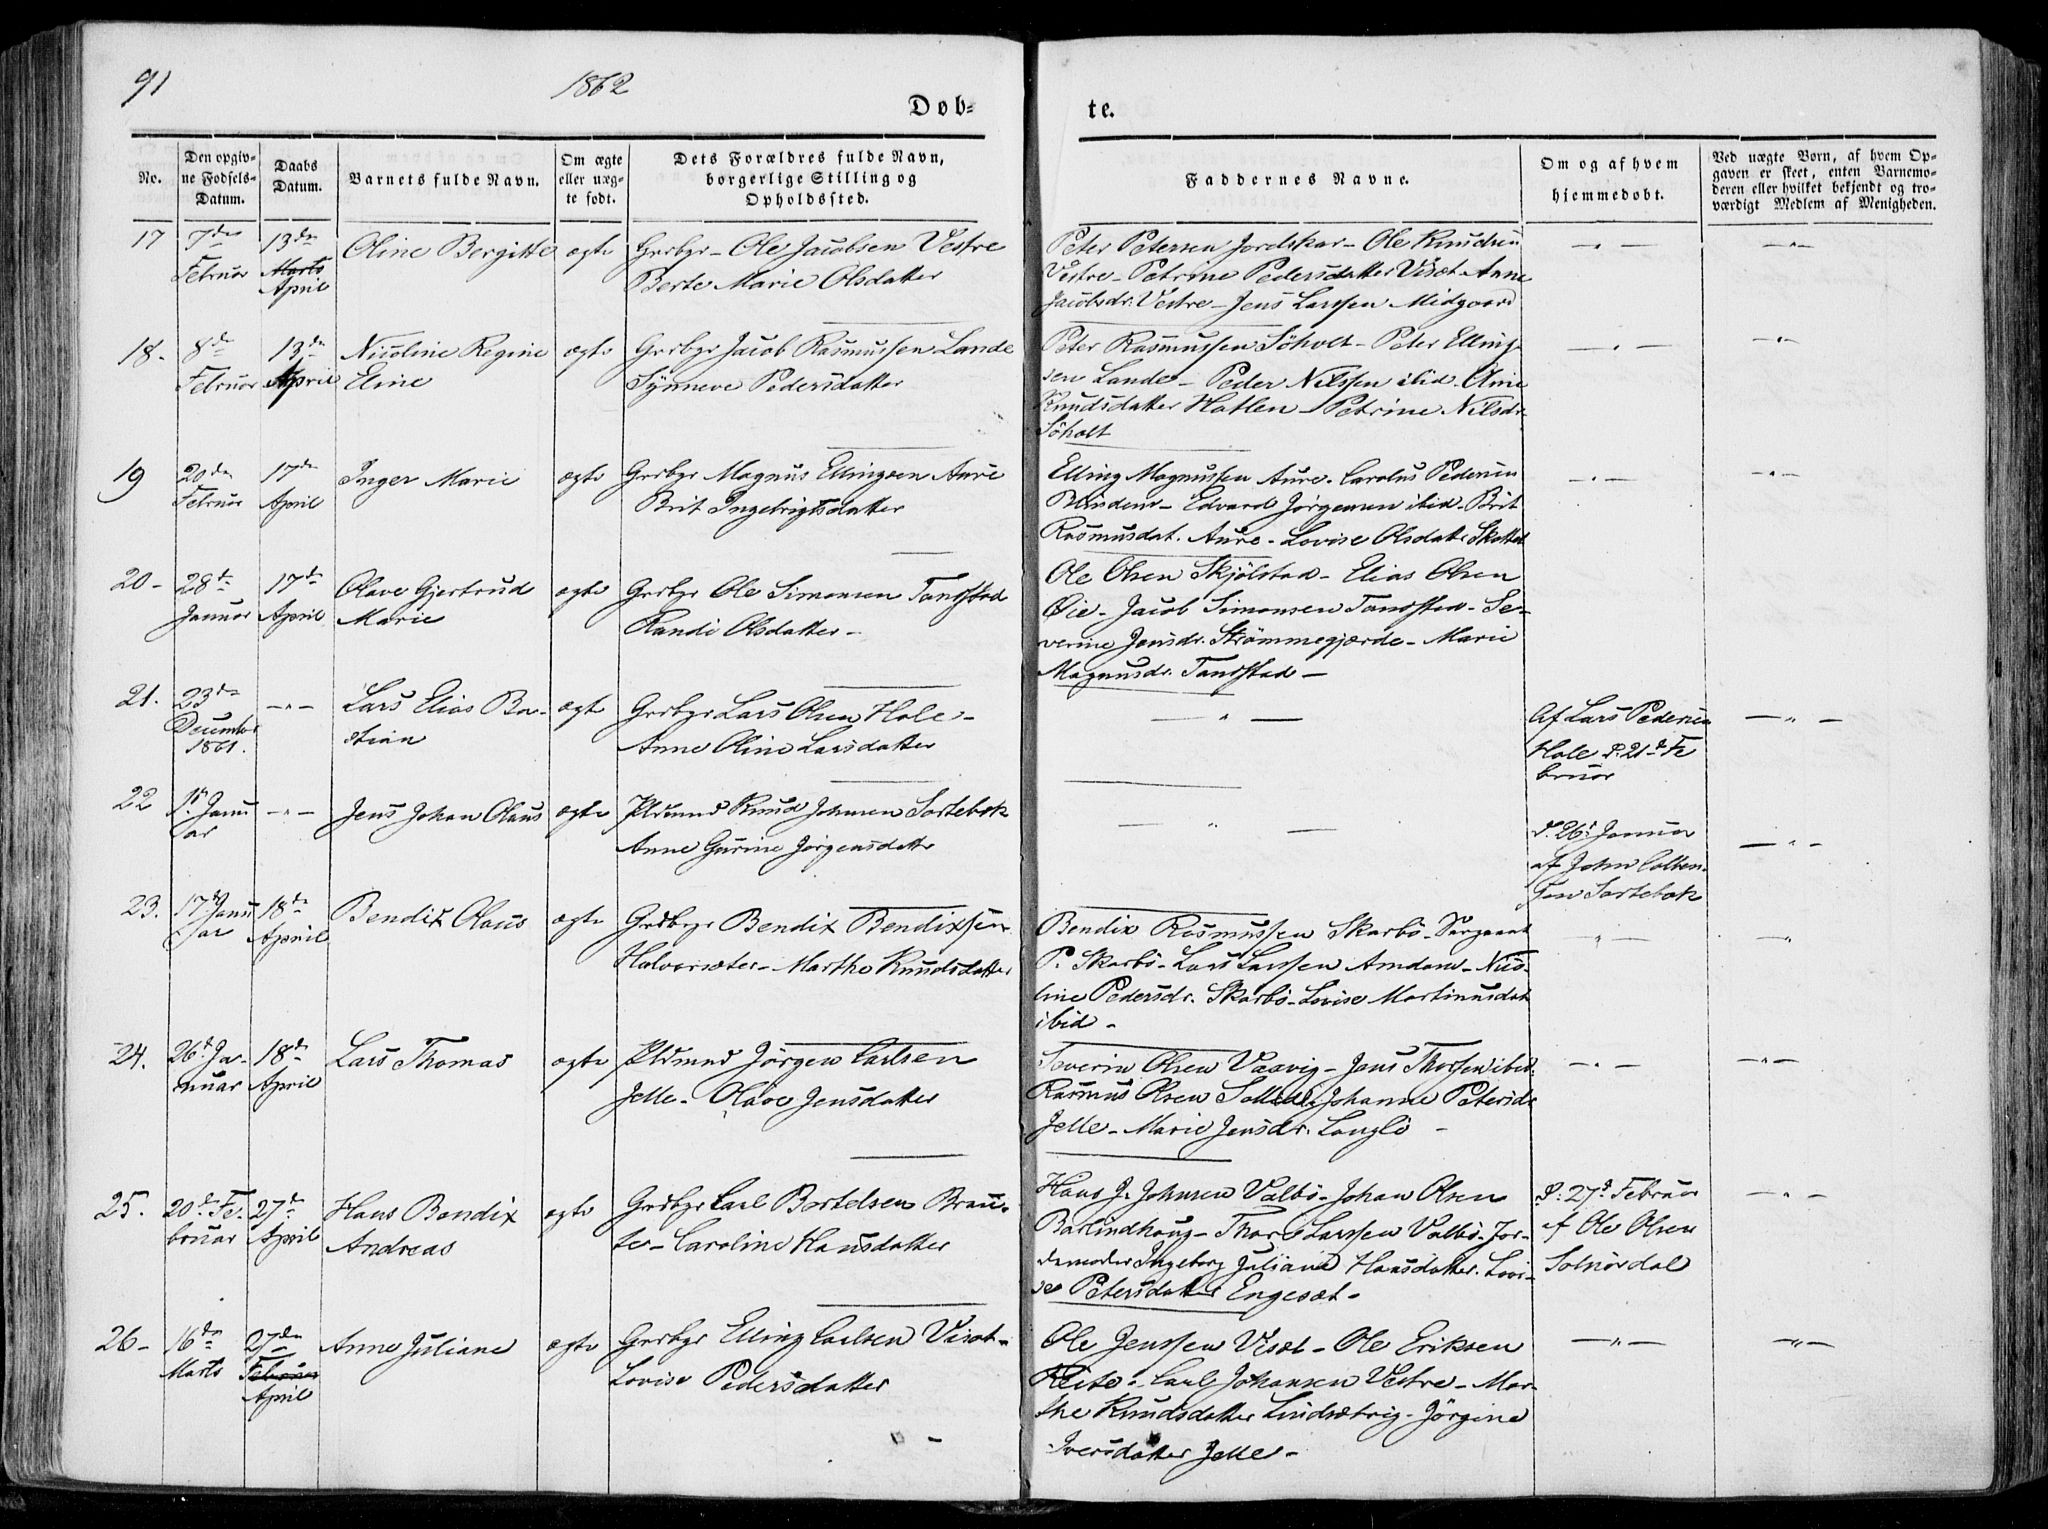 91
1862
Døb-
te.
No.
Den opgiv-
ne Fødsels-
Datum.
Daabs
Datum.
Barnets fulde Navn.
Om ægte
eller uæg-
te født.
Dets Forældres fulde Navn,
borgerlige Stilling og
Opholdssted.
Faddernes Navne.
Om og af hvem
hjemmedøbt.
Ved uægte Børn, af hvem Op-
gaven er skeet, enten Barnemo-
deren eller hvilket bekjendt og tro-
værdigt Medlem af Menigheden.
17
7de
Februar
13de
Marts
April
Oline Bergitte
ægte
Grdbgr - Ole Jacobsen Vestre
Berte Marie Olsdatter
Peter Petersen Jordskar - Ole Knudsen
Vestre - Petrine Pedersdatter Viset - Anne
Jacobsdr. Vestre - Jens Larssen Midgaard
18-
8de
Februar
13de
April
Nicoline Regine
Eline
ægte
Grdbgr Jacob Rasmussen Lande
Synneve Pedersdatter
Peter Rasmussen Søholt - Peter Elling-
sen Lande - Peder Nilssen ibid -
Knudsdatter Hatlen - Petrine Nilsdr.
Søholt
19
20de
Februar
17de
April
Inger Marie
ægte
Grdbgr Magnus Ellingsen Aure
Brit Ingebrigtsdatter
Elling Magnussen Aure - Carolus Pedersen
Blindem - Edvard Jørgensen ibid - Brit
Rasmusdat. Aure - Lovise Olsdatter
20-
28de
Januar
17de
April
Olave Gjertrud
Marie
ægte
Grdbgr Ole Simonsen Tandstad
Randi Olsdatter -
Ole Olsen Skjølstad - Elias Olsen
Øie - Jacob Simonsen Tandstad - Se-
verine Jensdr. Strømmegjærde - Marie
Magnusdr. Tandstad -
21.
23de
December
1861.
Lars Elias Ba-
stian
ægte
Grdbgr Lars Olsen Hole -
Anne Oline Larsdatter
Af Lars Pedersen
Hole d. 21de Fe
bruar
22
1ste Janu
ar
Jens Johan Olaus
ægte
Pldsmd Knud Johnsen Sortebæk
Anne Gurine Jørgensdatter
d. 26de Januar
af John
Sortebæk
23.
17de Janu
ar
18de
April
Bendix Olaus
ægte
Grdbgr Bendix Bendixsen
Halvorsæter - Marthe Knudsdatter
Bendix Rasmussen Skarbø - Sergeant
P. Skarbø - Lars Larssen Amdam - Nico-
line Pedersdr. Skarbø - Lovise Martinusdat
ibid -
24.
26de Ja-
nuar
18de
April
Lars Thomas
ægte
Pldsmd Jørgen Carlsen
Jelle - Olave Jensdatter
Severin Olsen Vaavig - Jens ibid.
Rasmus Olsen Johanne Petersdr
Jelle - Marie Jensdr. Langlø -
25.
20de Fe-
bruar
27de
April
Hans Bendix
Andreas
ægte
Grdbgr Carl Bertelsen Brau-
te - Caroline Hansdatter
Hans J. Johnsen Valbø - Johan Olsen
Barlindhaug - Larssen Valbø - Jor-
demoder Ingeborg Juliane Hansdatter. Lovi-
se Petersdatter Engeset -
d: 27de Februar
af Ole Olsen
Solnørdal
26-
16de
Marts
27de
Februar
April
Anne Juliane
ægte
Grdbgr Elling Carlsen Viset -
Lovise Pedersdatter
Ole Jenssen Viset - Ole Eriksen
Reite - Carl Johansen Vestre - Mar-
the Knudsdatter Lindsætvig - Jørgine
Iversdatter Jelle -